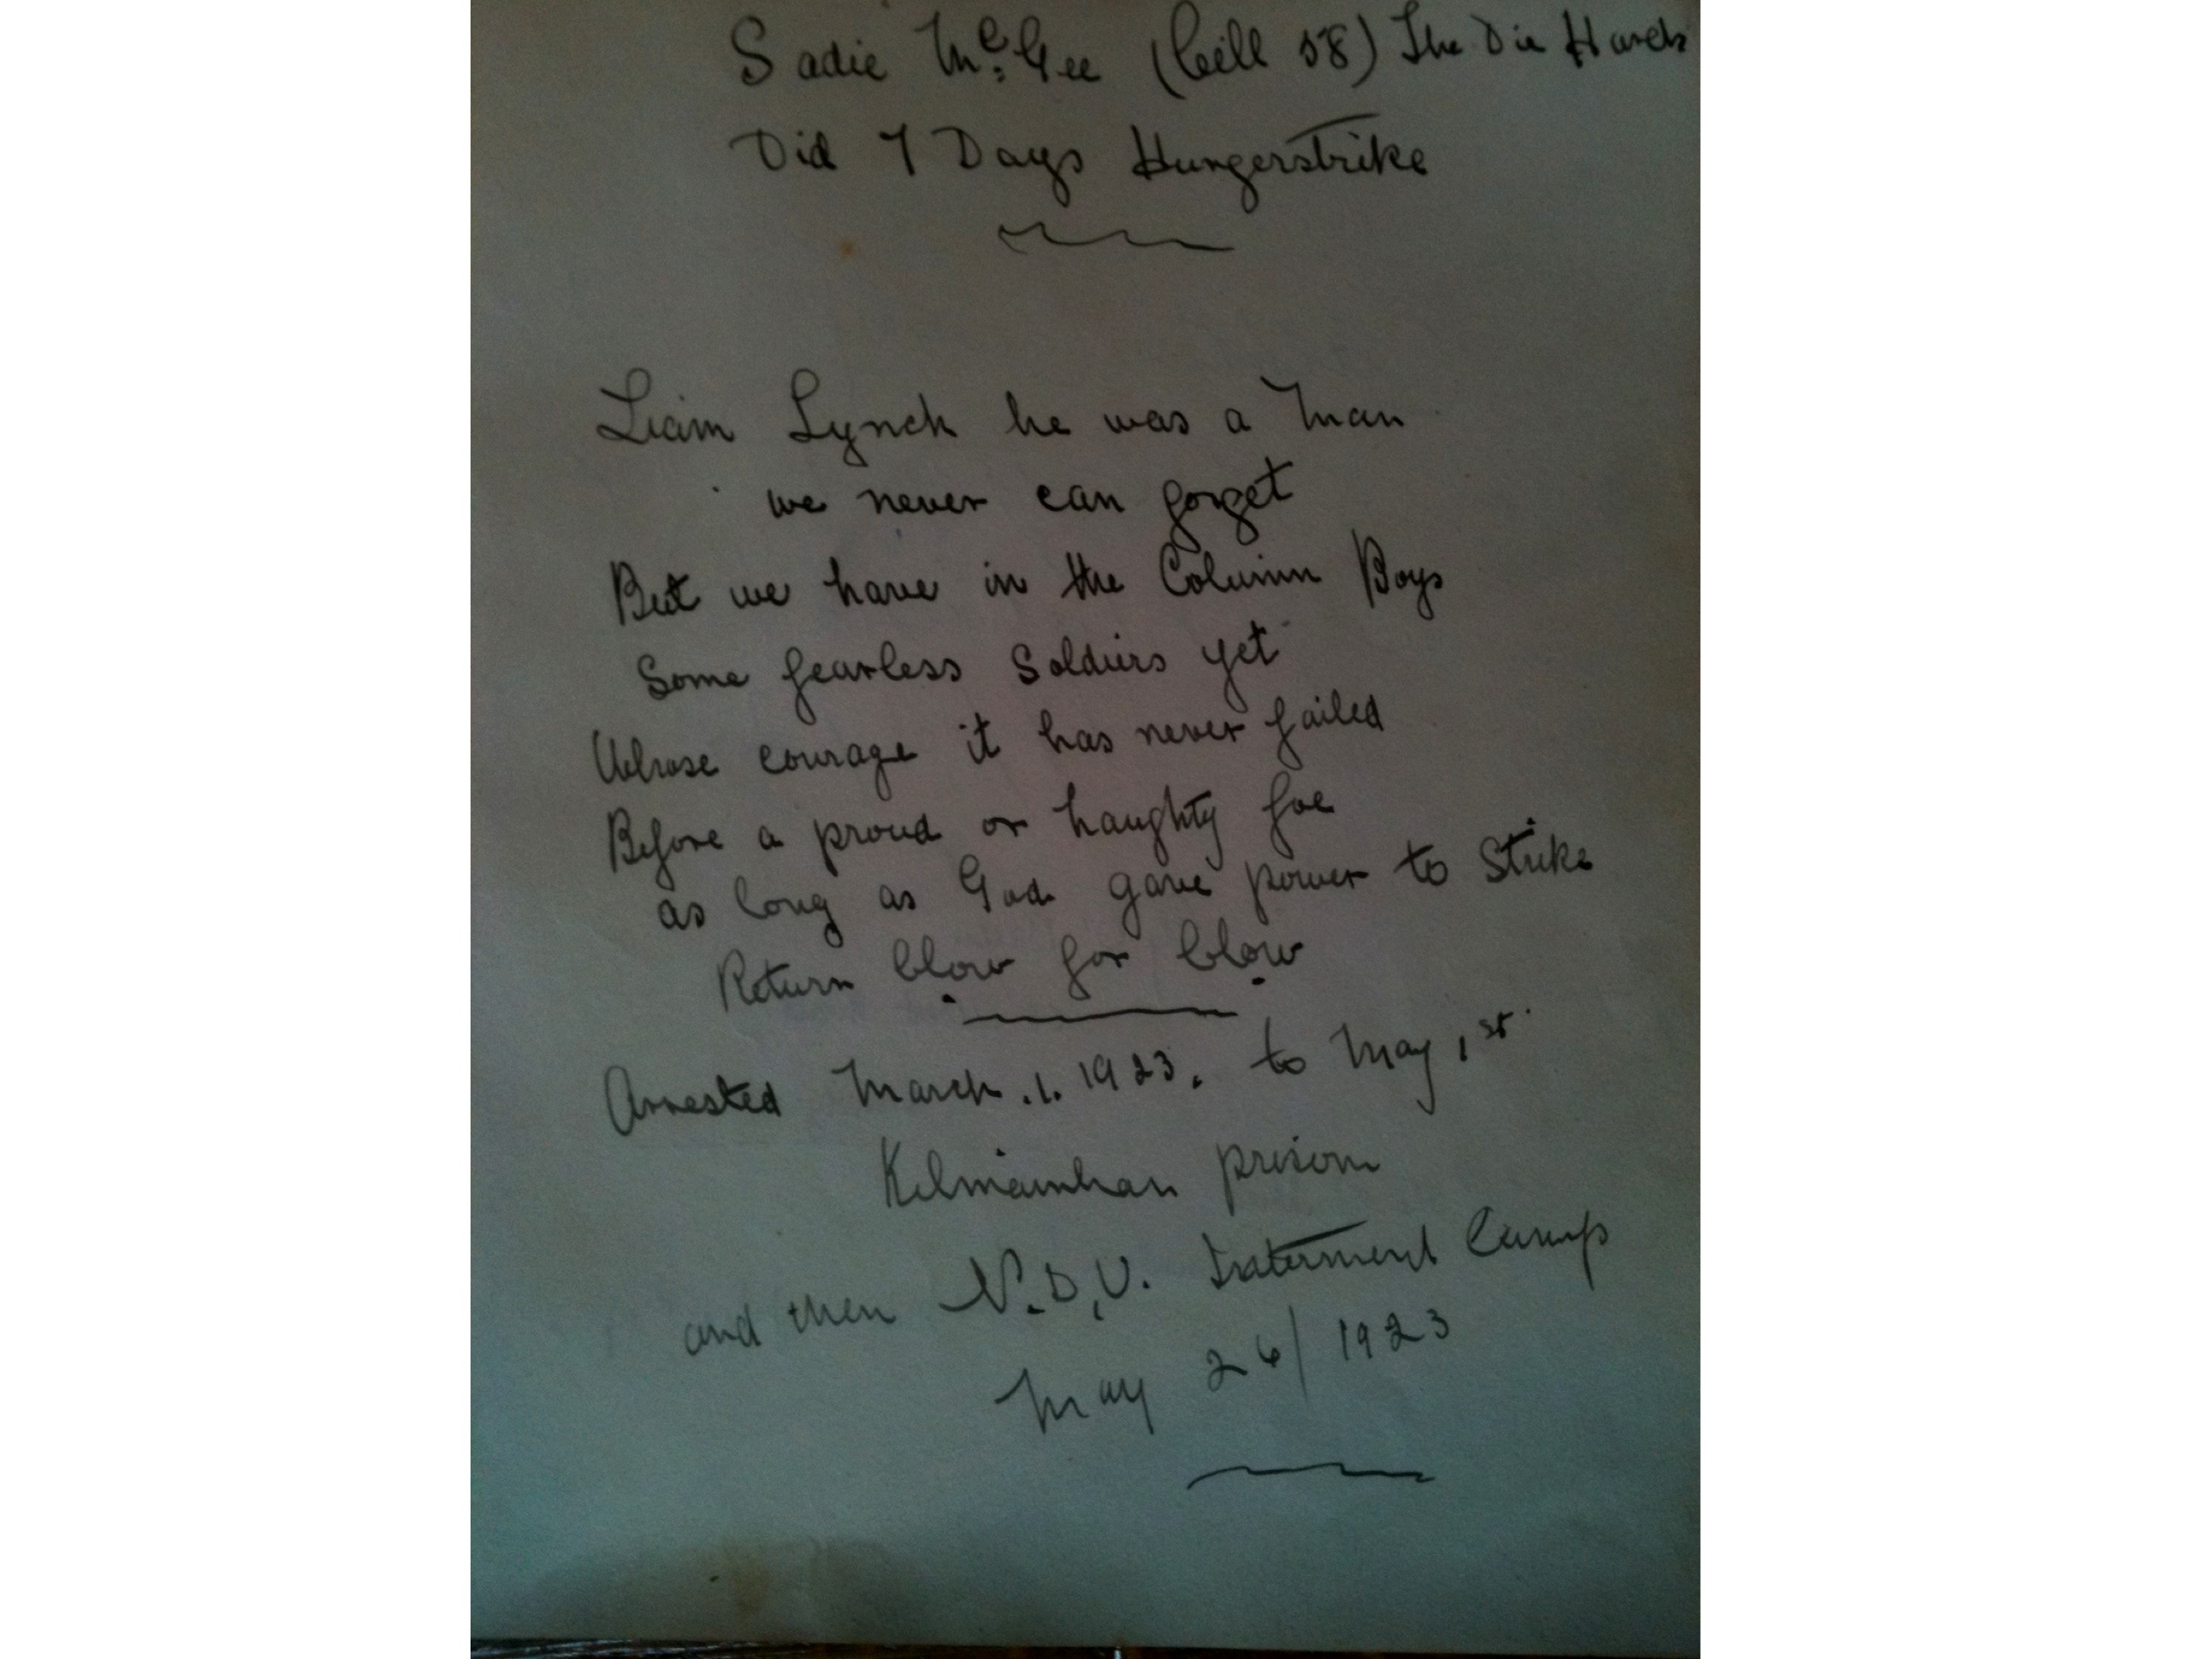 Sadie McGee (Cell 58) The Die Hards
Did 7 Days Hungerstrike
Liam Lynch he was a man
we never can forget
But we have in the Column Boys
Some fearless Soldiers yet
Whose courage it has never failed
Before a proud or haughty foe
as long as God gave power to Strike
Return blow for blow
Arrested March. 1. 1923. to May 1st.
Kilmainhan prison
and then N.D.U. Interment Camp
May 26/1923